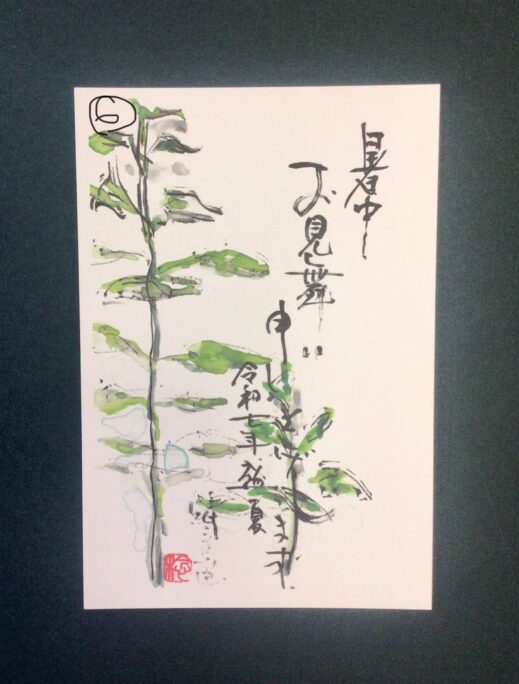 暑中
お見舞い
申し上げます
令和七年盛夏
6